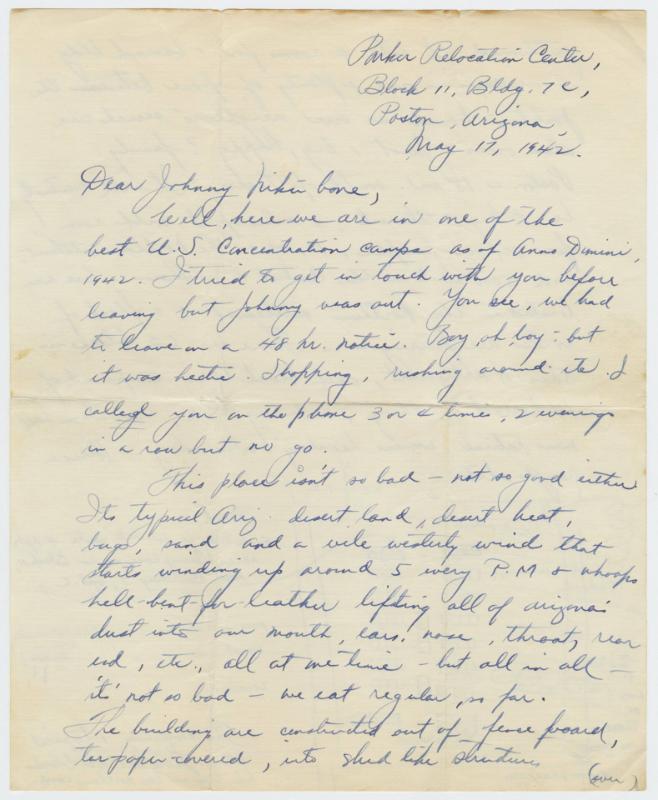 Parker Relocation Center,
Block 11, Bldg. 7C,
Poston, Arizona,
May 17, 1942.
Dear Johnny
Well, here we are in one of the
best U.S. Concentration camps as of Anno Dimini,
1942. I tried to get in touch with you before
leaving but Johnny was out. You see, we had
to leave on a 48 hr. notice. Boy, oh, boy - but
it was hectic. Shopping, rushing around etc. I
called you on the phone 3 or 4 times, 2 evenings
in a row but no go.
This place isn't so bad - not so good either
Its typical Ariz. desert land, desert heat,
bugs, sand and a vile westerly wind that
starts winding up around 5 every P.M & whoops
hell-bent-for-leather lifting all of arizona's
dust into our mouth, ears, nose, throat, rear
end, etc., all at one time - but all in all -
it's not so bad - we eat regular, so far.
The building are constructed out of fence board,
tar paper-covered, into shed like structures
(over)